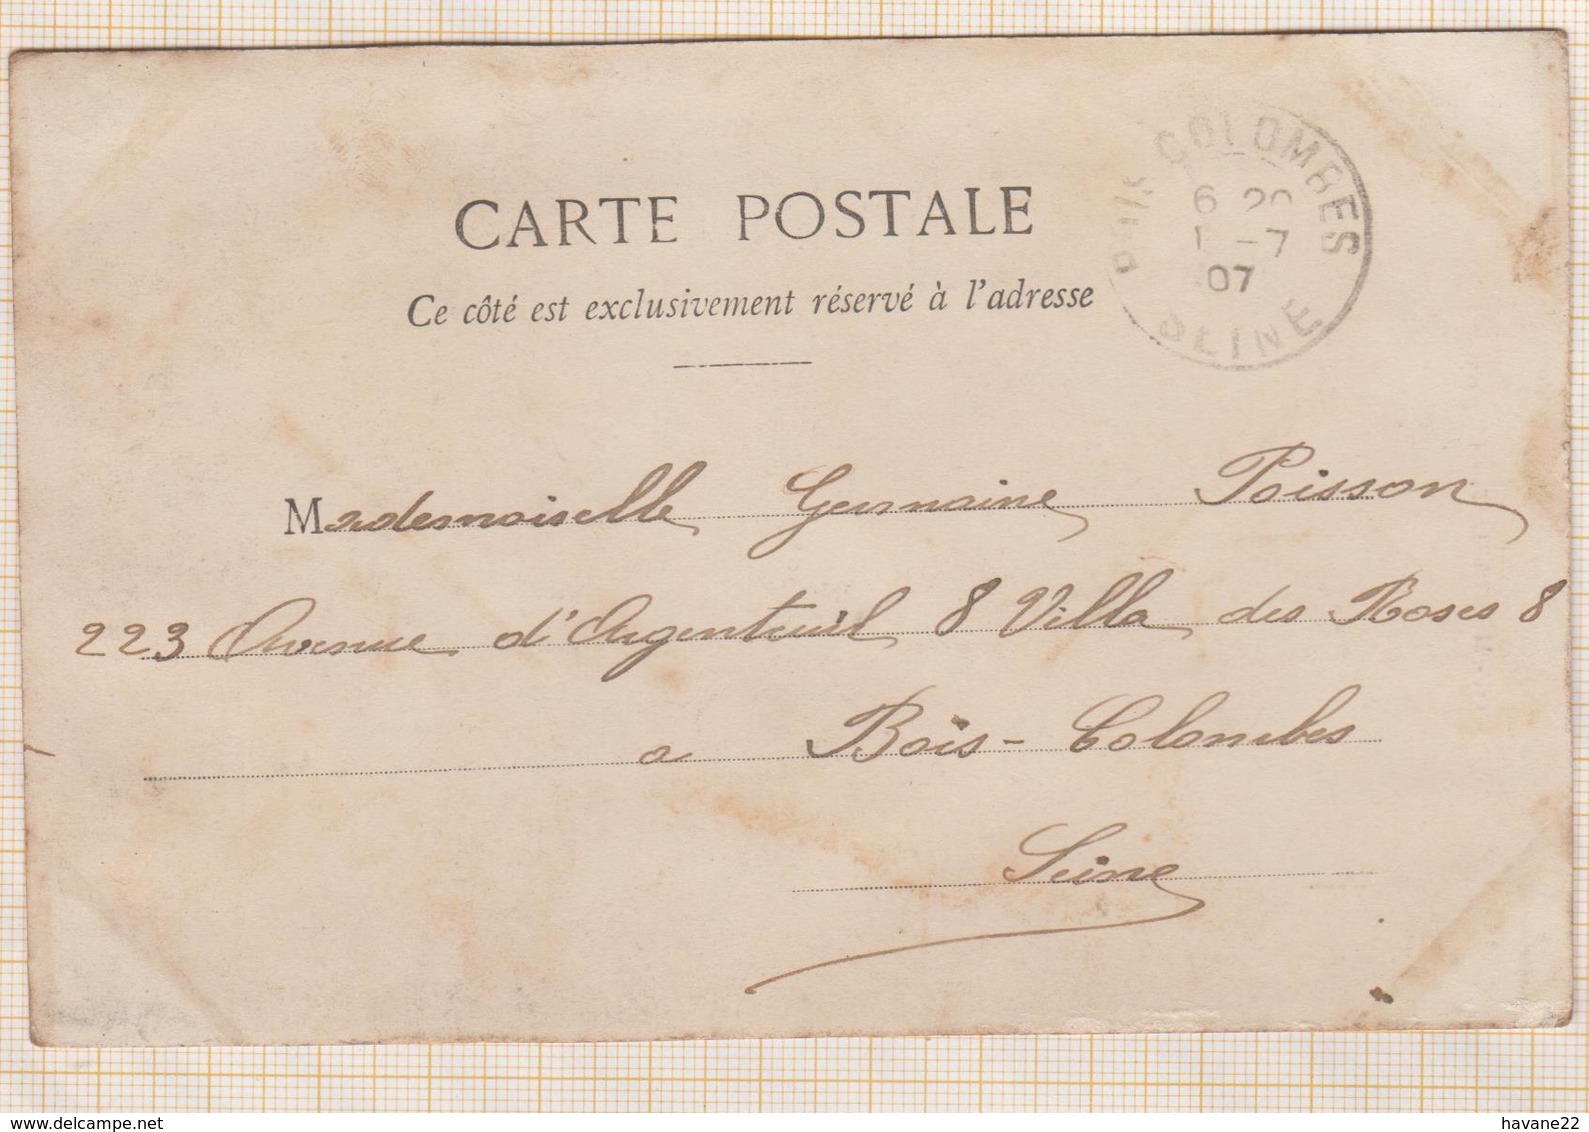 CARTE POSTALE
Ce côté est exclusivement réservé à l'adresse
COLOMBES
6 20
1 -7
07
SEINE
Mademoiselle Germaine Poisson
223 Avenue d'Argenteuil 8 Villa des Roses 8
a Bois-Colombes
Seine
havane22